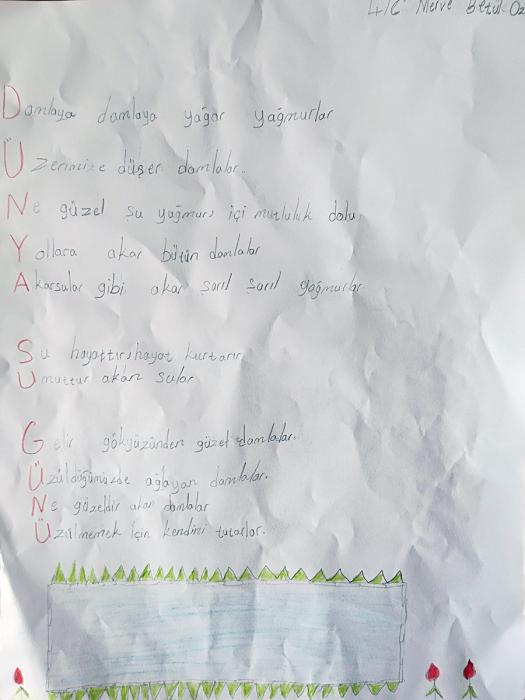 4/C Merve Betül Öz
Damlaya damlaya yağar yağmurlar
Üzerimize düşer damlalar.
Ne güzel şu yağmur, içi mutluluk dolu,
Yollara akar bütün damlalar
Akarsular gibi akar şarıl şarıl yağmurlar
Su hayattır, hayat kurtarır,
Umuttur akan sular
Gelir gökyüzünden güzel damlalar.
Üzüldüğümüzde ağlayan damlalar.
Ne güzeldir akar damlalar
Üzülmemek için kendini tutarlar.